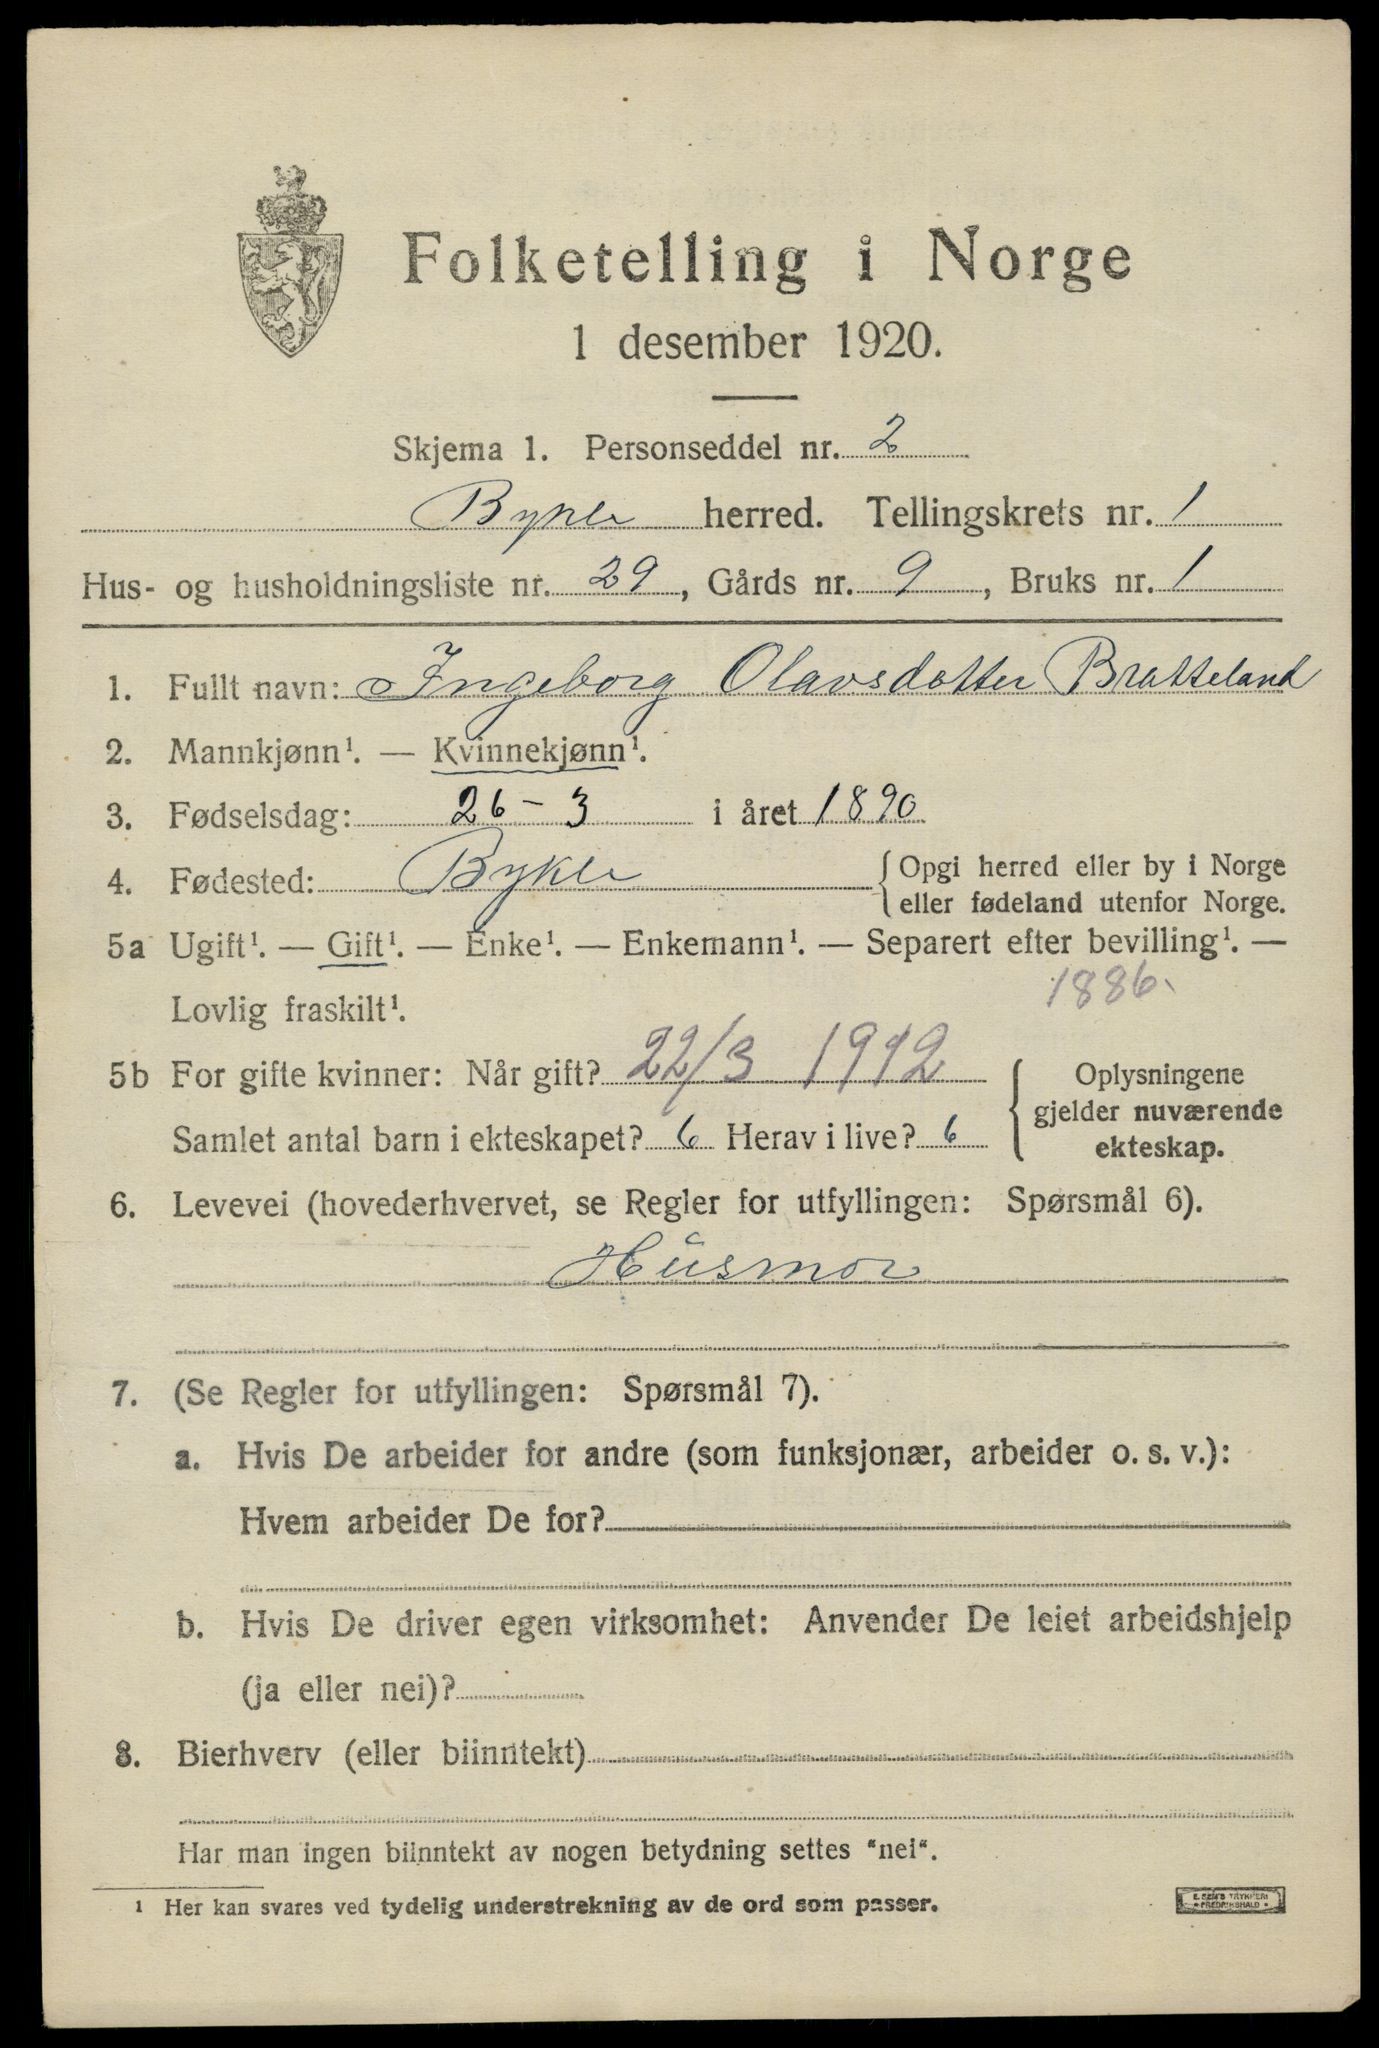 Folketelling i Norge
1 desember 1920.
Skjema 1. Personseddel nr. 2
Bykle herred. Tellingskrets nr. 1
Hus- og husholdningsliste nr. 29, Gårds nr. 9, Bruks nr. 1
1. Fullt navn: Ingeborg Olavsdotter Bratteland
2. Mannkjønn¹. — Kvinnekjønn¹.
3. Fødselsdag: 26-3 i året 1890
4. Fødested: Bykle {Opgi herred eller by i Norge
eller fødeland utenfor Norge.
5a Ugift¹. — Gift¹. — Enke¹. — Enkemann¹. — Separert efter bevilling¹. —
1886.
Lovlig fraskilt¹.
5b For gifte kvinner: Når gift? 22/3 1912
Samlet antal barn i ekteskapet? 6 Herav i live? 6
{Oplysningene
gjelder nuværende
ekteskap.
6. Levevei (hovederhvervet, se Regler for utfyllingen: Spørsmål 6).
Husmor
7. (Se Regler for utfyllingen: Spørsmål 7).
a. Hvis De arbeider for andre (som funksjonær, arbeider o. s. v.):
Hvem arbeider De for?
b. Hvis De driver egen virksomhet: Anvender De leiet arbeidshjelp
(ja eller nei)?
8. Bierhverv (eller biinntekt)
Har man ingen biinntekt av nogen betydning settes "nei".
¹ Her kan svares ved tydelig understrekning av de ord som passer.
E. SEM'S TRYKKERI
• FREDRIKSHALD •